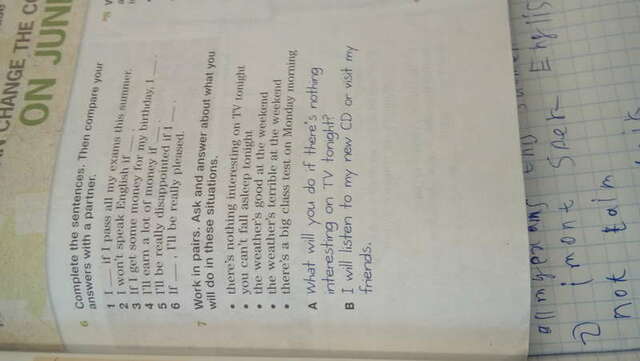 CHANGE THE CO
ON JUN
6 Complete the sentences. Then compare your
answers with a partner.
1 I ___ if I pass all my exams this summer.
2 I won't speak English if ___ .
3 If I get some money for my birthday, I ___ .
4 I'll earn a lot of money if ___ .
5 I'll be really disappointed if I ___ .
6 If ___ , I'll be really pleased.
7 Work in pairs. Ask and answer about what you
will do in these situations.
• there's nothing interesting on TV tonight
• you can't fall asleep tonight
• the weather's good at the weekend
• the weather's terrible at the weekend
• there's a big class test on Monday morning
A What will you do if there's nothing
interesting on TV tonight?
B I will listen to my new CD or visit my
friends.
all my exams this
2) i mont Speak Englis
not